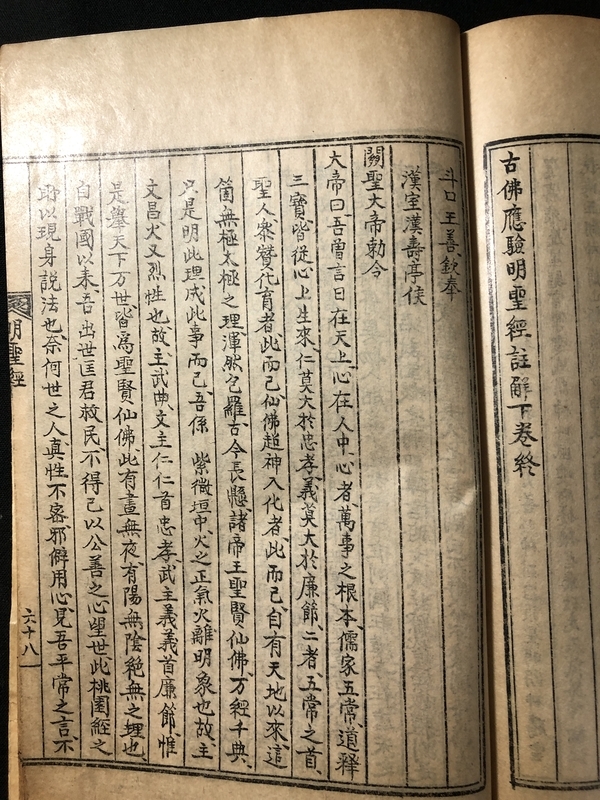 古佛應驗明聖經註解下卷終
斗口王善欽奉
漢室漢壽亭侯
關聖大帝勅令
大帝曰吾曾言日在天上心在人中心者萬事之根本儒家五常道釋
三寶皆從心上生來仁莫大於忠孝義莫大於廉節二者五常之首
聖人參贊化育者此而已仙佛超神入化者此而已自有天地以來這
箇無極太極之理渾然包羅古今長懸諸帝王聖賢仙佛万經千典
只是明此理成此事而已吾係 紫微垣中火之正氣火離明象也故主
文昌火又烈性也故主武曲文主仁仁首忠孝武主義義首廉節惟
是舉天下万世皆爲聖賢仙佛此有晝無夜有陽無陰絶無之理也
自戰國以來吾出世匡君救民不得已以公善之心望世此桃園經之
所以現身說法也奈何世之人真性不密邪僻用心見吾平常之言不
明聖經
六十八